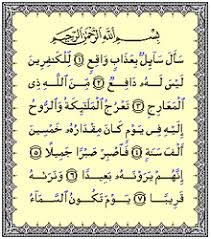 بِسْمِ ٱللَّهِ ٱلرَّحْمَٰنِ ٱلرَّحِيمِ
سَأَلَ سَآئِلٌۢ بِعَذَابٍ وَاقِعٍ ١ لِّلْكَٰفِرِينَ
لَيْسَ لَهُۥ دَافِعٌ ٢ مِّنَ ٱللَّهِ ذِى
ٱلْمَعَارِجِ ٣ تَعْرُجُ ٱلْمَلَٰٓئِكَةُ وَٱلرُّوحُ
إِلَيْهِ فِى يَوْمٍ كَانَ مِقْدَارُهُۥ خَمْسِينَ
أَلْفَ سَنَةٍ ٤ فَٱصْبِرْ صَبْرًا جَمِيلًا ٥
إِنَّهُمْ يَرَوْنَهُۥ بَعِيدًا ٦ وَنَرَىٰهُ
قَرِيبًا ٧ يَوْمَ تَكُونُ ٱلسَّمَآءُ